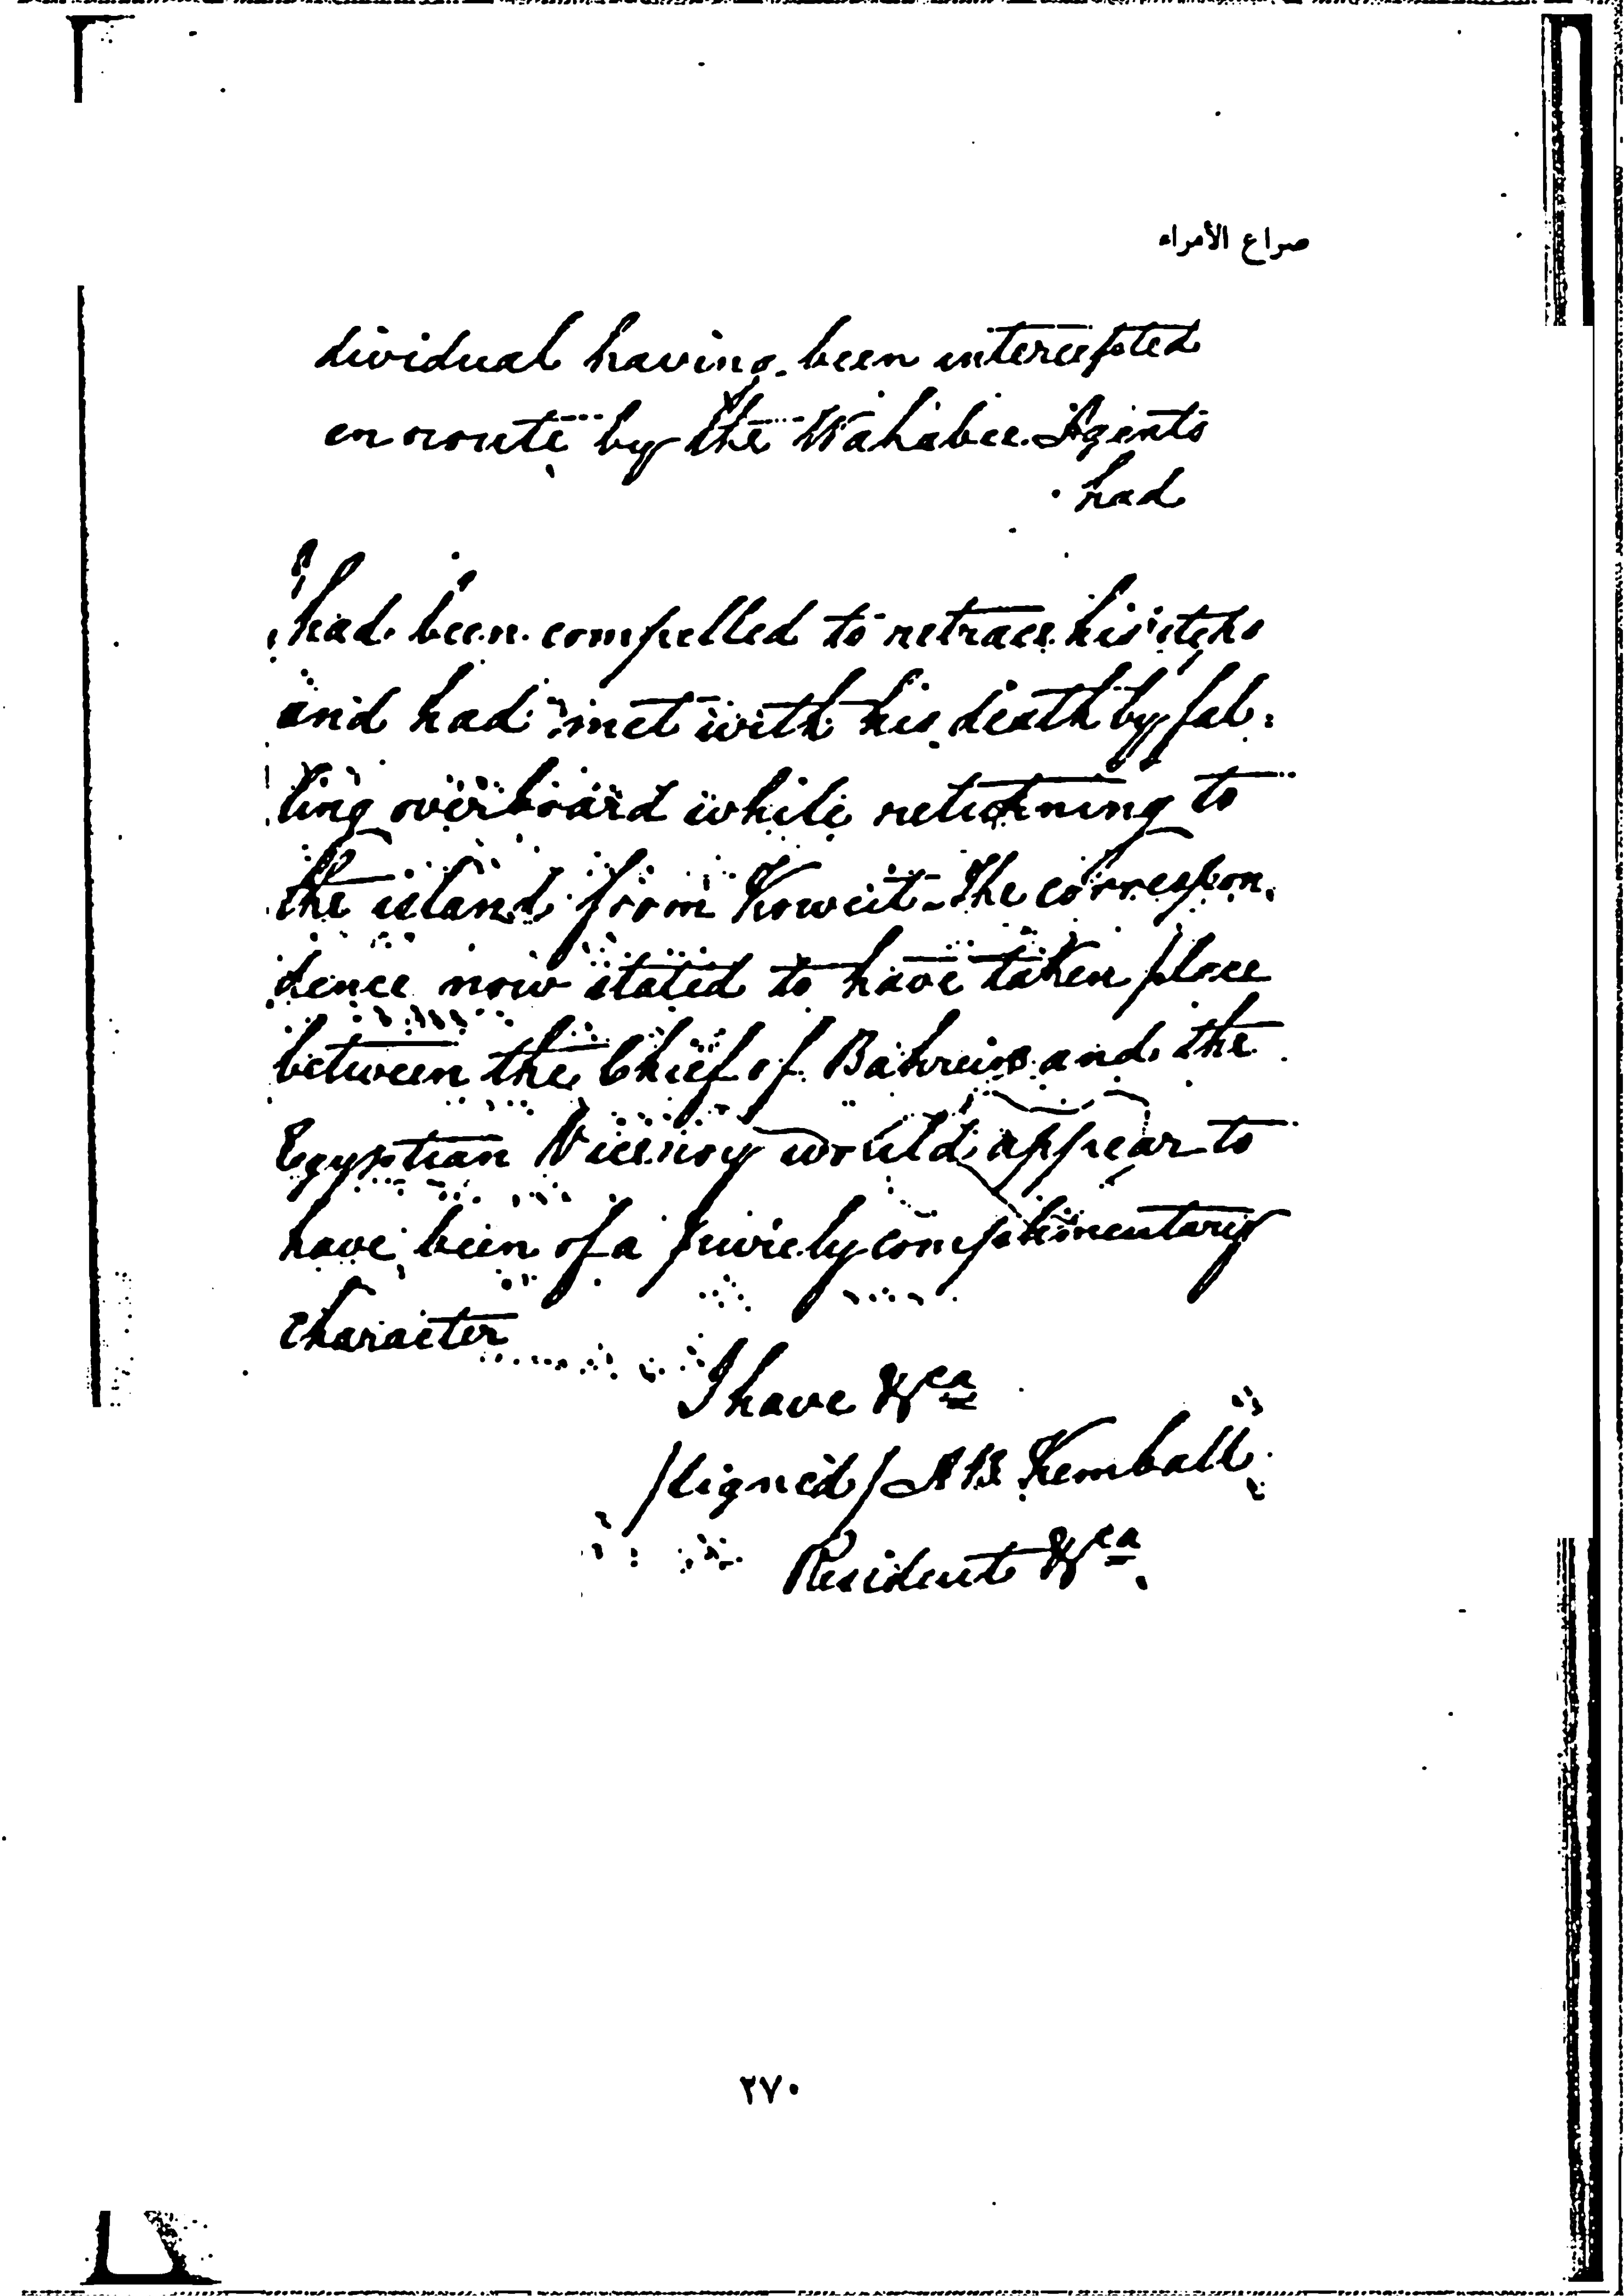 صراع الأمراء
dividual having been intercepted
en route by the Wahabee Agents
had
had been compelled to retrace his steps
and had met with his death by fal-
ling overboard while returning to
the island from Koweit - The correspon-
dence now stated to have taken place
between the Chief of Bahrein and the
Egyptian Viceroy would appear to
have been of a purely complimentary
character
I have &ca
/signed/ A B Kemball
Resident &ca
٢٧٠